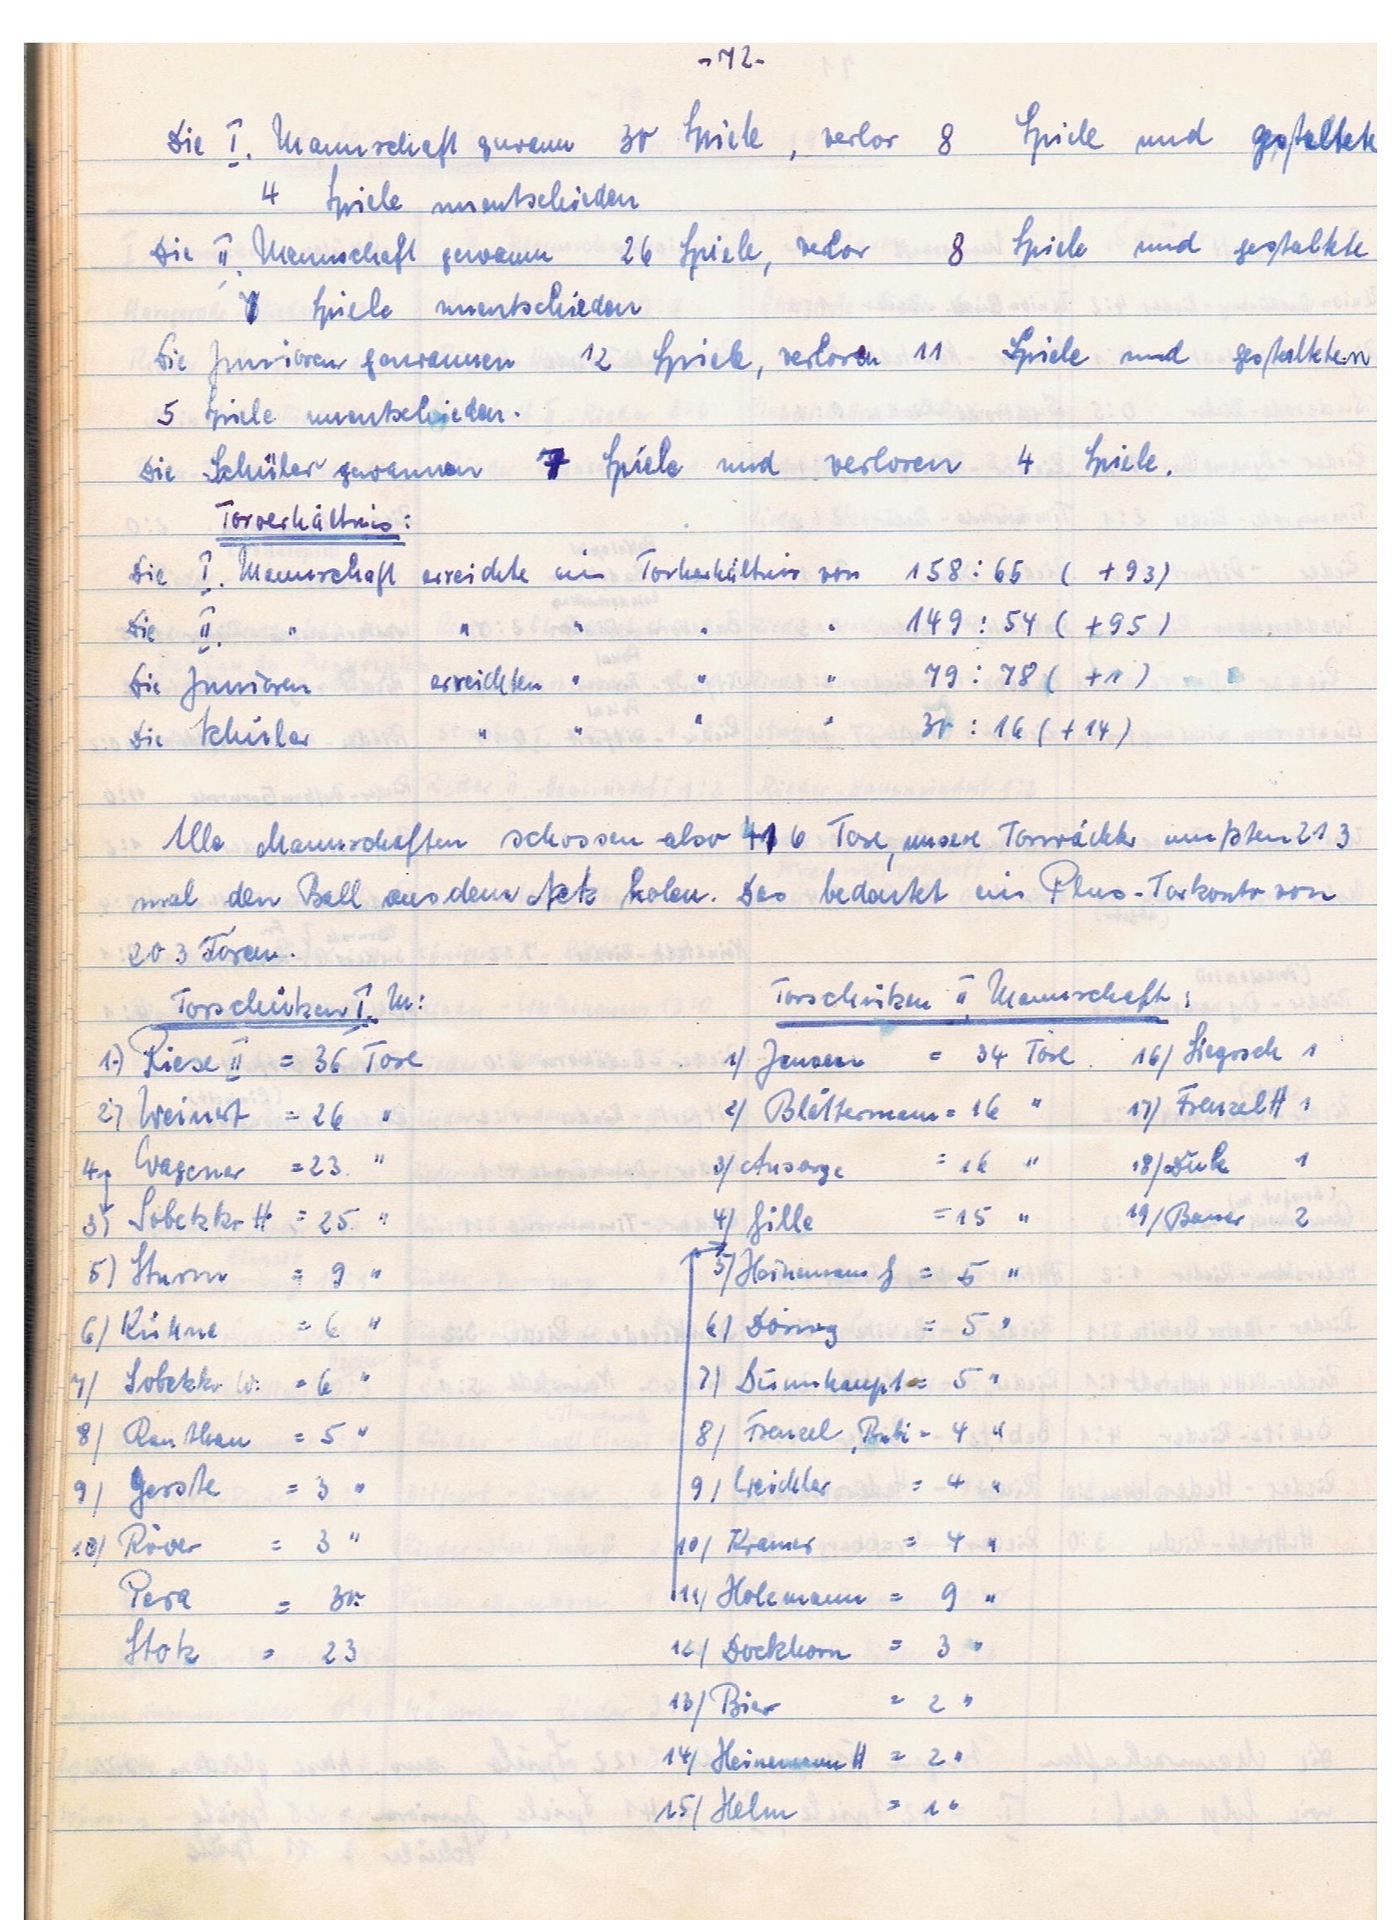 -72-
Die I. Mannschaft gewann 30 Spiele, verlor 8 Spiele und gestaltete
4 Spiele unentschieden
Die II. Mannschaft gewann 26 Spiele, verlor 8 Spiele und gestaltete
7 Spiele unentschieden
Die Junioren gewannen 12 Spiele, verloren 11 Spiele und gestalteten
5 Spiele unentschieden.
Die Schüler gewannen 7 Spiele und verloren 4 Spiele.
Torverhältnis:
Die I. Mannschaft erreichte ein Torverhältnis von 158 : 65 ( +93)
Die II. " " " " " 149 : 54 ( +95)
Die Junioren erreichten " " " 79 : 78 ( +1)
Die Schüler " " " " 30 : 16 ( +14)
Alle Mannschaften schossen also 416 Tore, unsere Torwächter mußten 213
mal den Ball aus dem Netz holen. Das bedeutet ein Plus-Torkonto von
203 Toren.
Torschützen I. M:
1.) Riese II = 36 Tore
2.) Weinert = 26 "
4) Wagener = 23 "
3) Sobetzko H = 25 "
5) Sturm = 9 "
6) Kühne = 6 "
7) Sobetzko W. = 6 "
8) Ranthan = 5 "
9) Gerste = 3 "
10) Röver = 3 "
Pera = 30
Stotz = 23
Torschützen II Mannschaft:
1) Jensen = 34 Tore
2) Blättermann = 16 "
3) Ansorge = 16 "
4) Gille = 15 "
5) Heinemann G = 5 "
6) = 5 "
7) Dümmhaupt = 5 "
8) Frenzel, Bubi = 4 "
9) Weichler = 4 "
10) Kramer = 4 "
11) Holzmann = 9 "
12) Dockhorn = 3 "
13) Bier = 2 "
14) Heinemann H = 2 "
15) Helm = 1 "
16) 1
17) Frenzel H 1
18) 1
19) Bauer 2